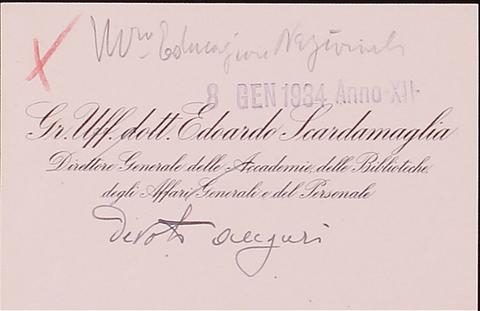 Mro Educazione Nazionale
8 GEN 1934 Anno-XII-
Gr. Uff. dott. Edoardo Scardamaglia
Direttore Generale delle Accademie, delle Biblioteche,
degli Affari Generali e del Personale
devoti auguri